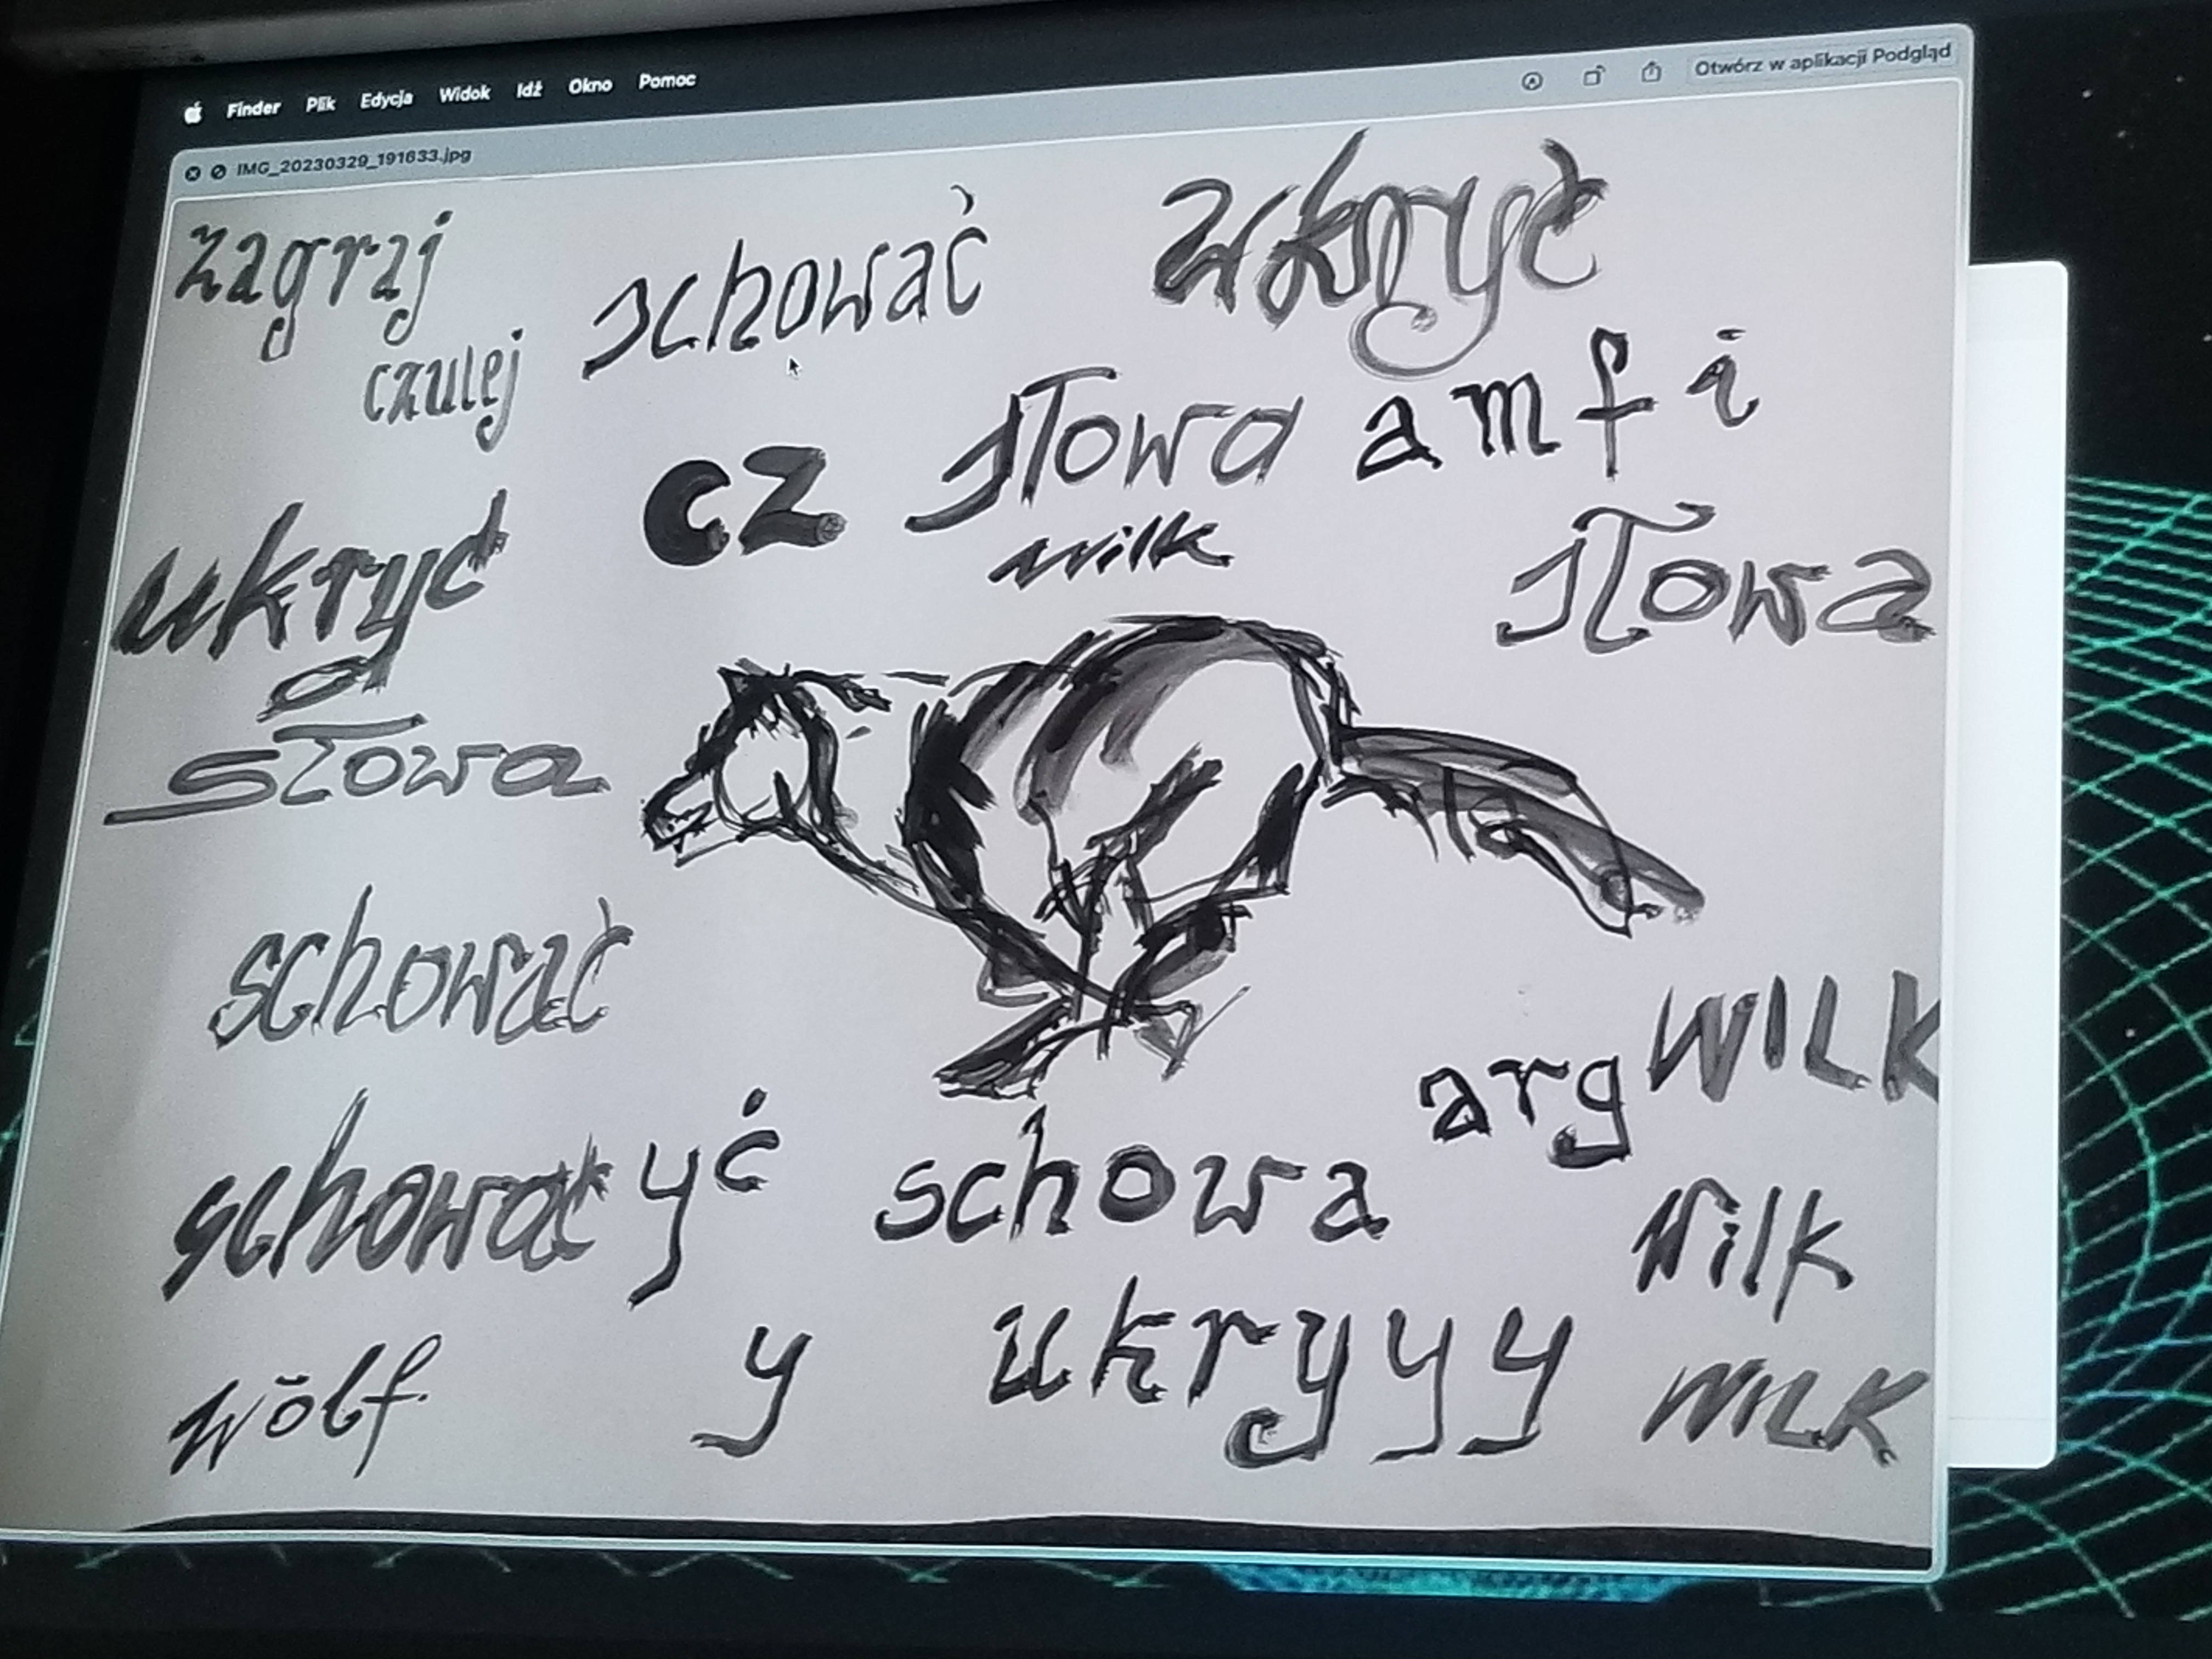 Finder Plik Edycja Widok Idź Okno Pomoc
Otwórz w aplikacji Podgląd
IMG_20230329_191633.jpg
zagraj
schować
ukryć
czulej
cz
słowa
amfi
wilk
ukryć
słowa
słowa
schować
WILK
arg
schować
yć
schowa
Wilk
wölf
y
ukryyy
WILK